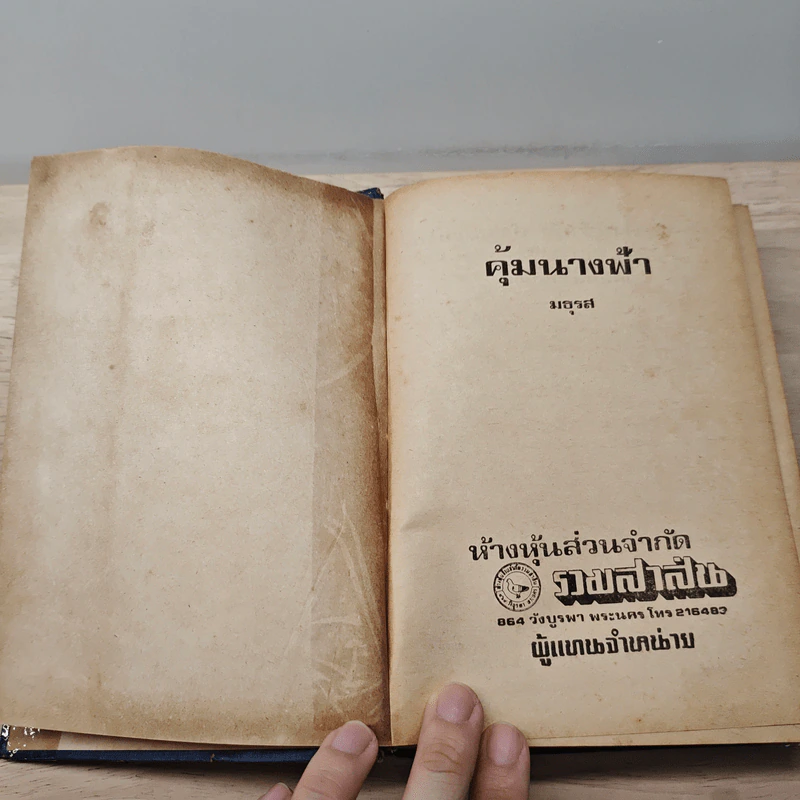 คุ้มนางฟ้า
มธุรส
ห้างหุ้นส่วนจำกัด
รวมสาส์น
864 วังบูรพา พระนคร โทร 216483
ผู้แทนจำหน่าย